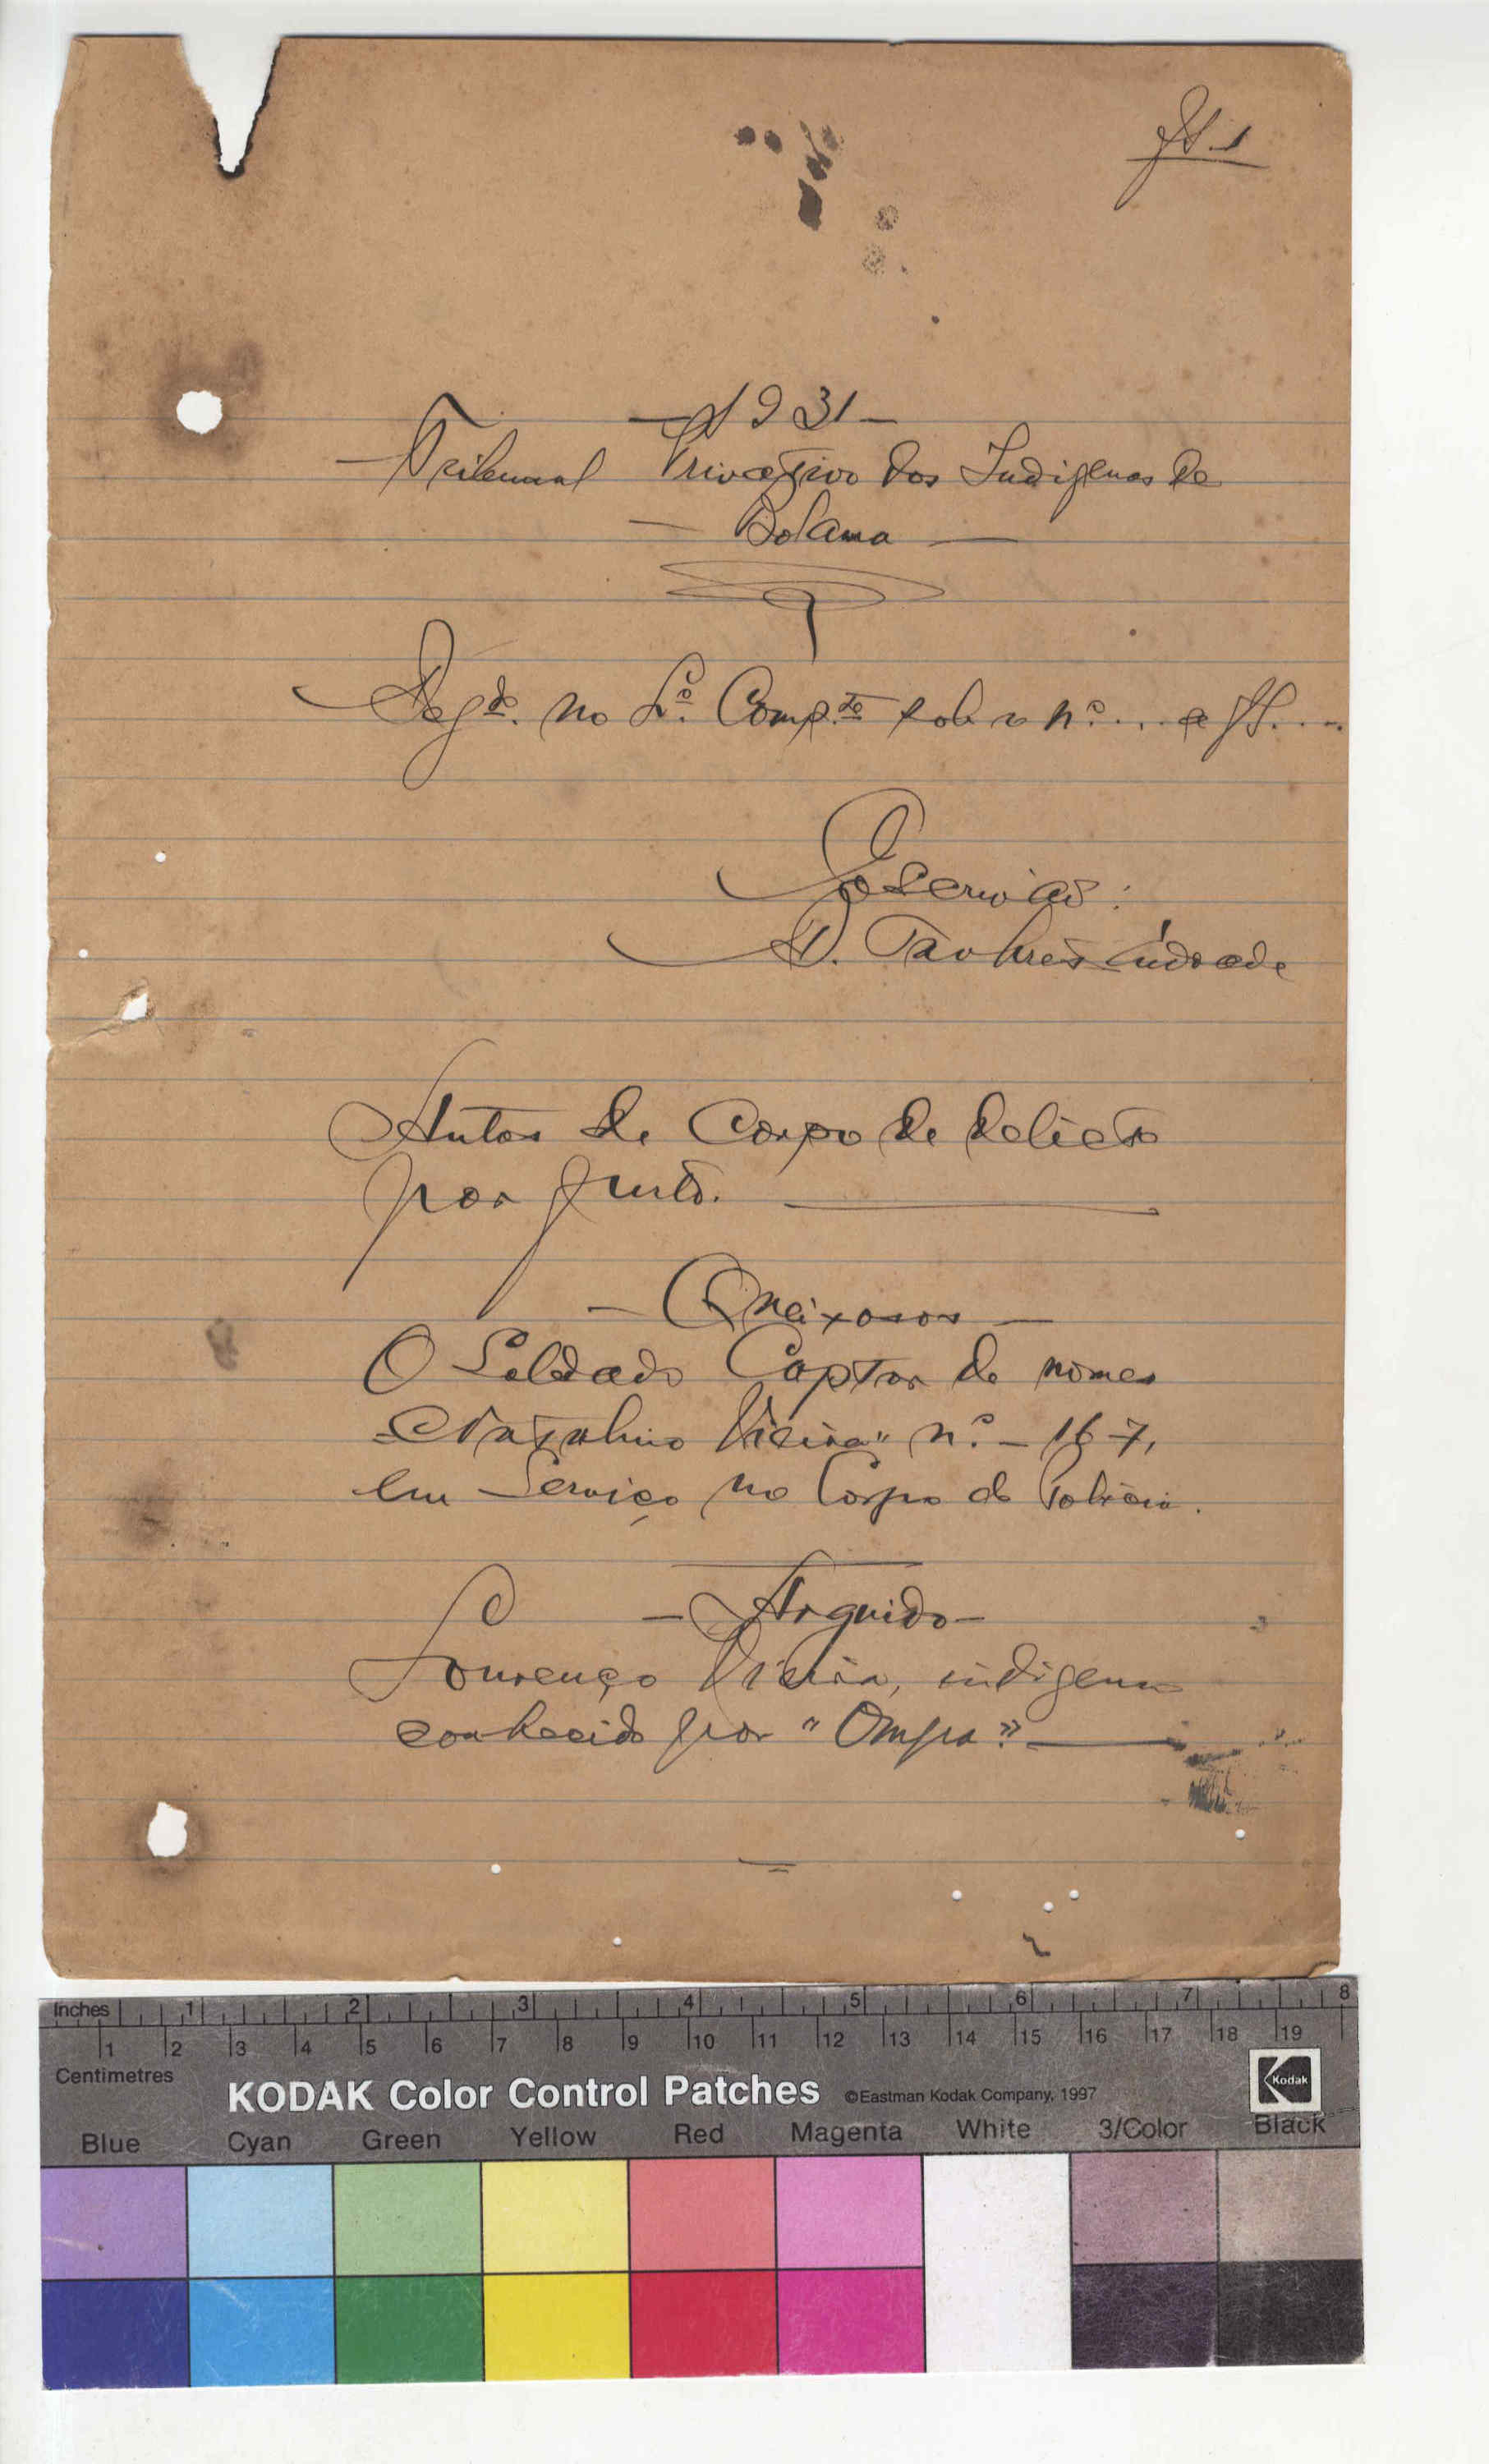 fls. 1
— 1931 —
— Tribunal Privativo dos Indigenas de
— Bolama —
Regdo. no Lo. Compte sob o no. ... a fls. ...
O
Escrivão:
Tavares Andrade
Autos de Corpo de delicto
por furto.
— Queixosos —
O Soldado Captor de nomes
Vieira" n.º – 167,
em Serviço no Corpo de Policia.
— Arguido —
Lourenço Vieira, indigena
conhecido por "Ompa"
Inches 1 2 3 4 5 6 7 8
1 2 3 4 5 6 7 8 9 10 11 12 13 14 15 16 17 18 19
Centimetres
KODAK Color Control Patches ©Eastman Kodak Company, 1997 Kodak
Blue Cyan Green Yellow Red Magenta White 3/Color Black